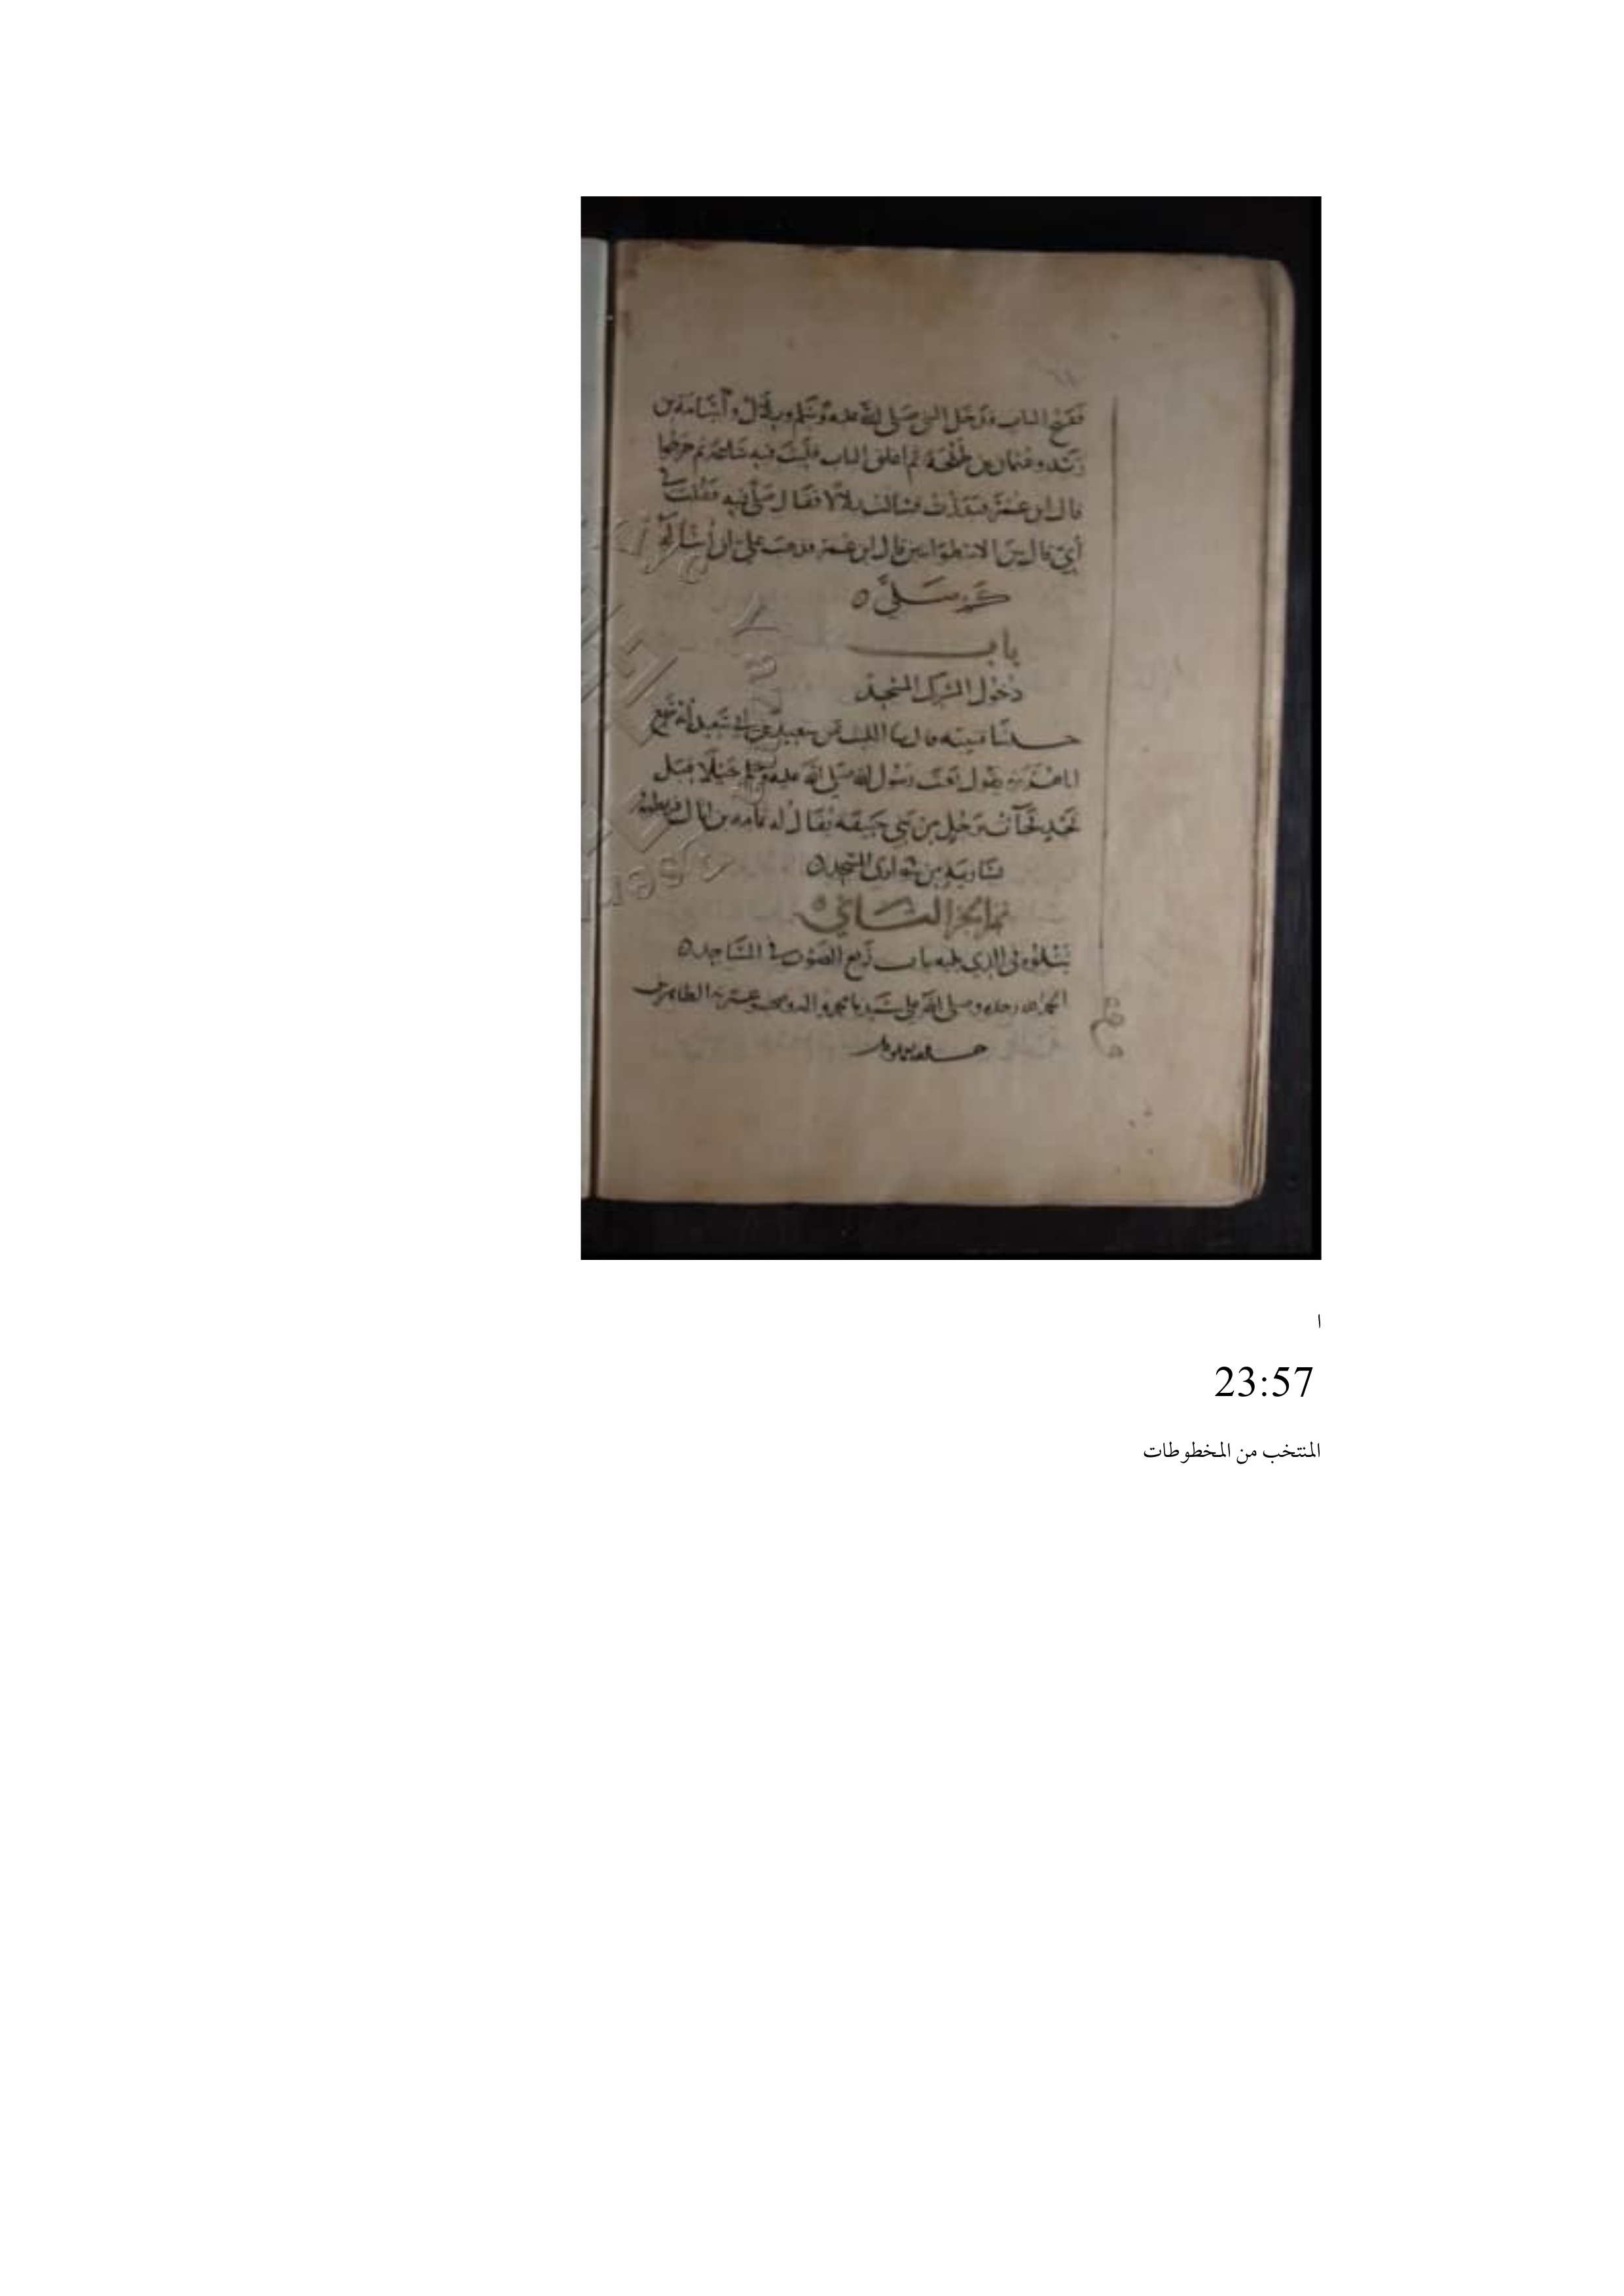 ففتح الباب فدخل النبي صلى الله عليه وسلم وبلال وأسامة بن
زيد وعثمان بن طلحة ثم اغلق الباب فلبث فيه ساعة ثم خرجوا
قال ابن عمر فبدرت فسالت بلالا فقال صلى فيه فقلت في
أي قال بين الاسطوانتين قال ابن عمر فذهب علي ان أسأله
كم صلى ٥
باب
دخول المشرك المسجد
حدثنا قتيبة قال نا الليث عن سعيد بن ابي سعيد أنه سمع
ابا هريرة يقول بعث رسول الله صلى الله عليه وسلم خيلا قبل
نجد فجآت برجل من بني حنيفة يقال له ثمامة بن اثال فربطوه
بسارية من سواري المسجد ٥
تم الجزء الثاني ٥
يتلوه في الذي يليه باب رفع الصوت في المساجد ٥
الحمد لله وحده وصلى الله على سيدنا محمد واله وصحبه وعترته الطاهرين
ا
23:57
المنتخب من المخطوطات